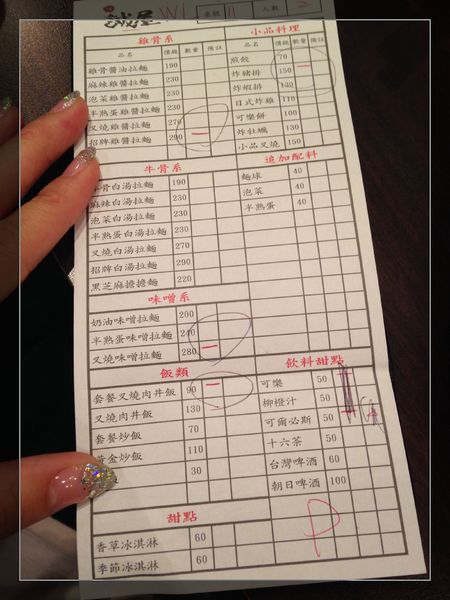 誠屋 W1 桌號 11 人數 2
雞骨系
品名 價錢 數量 備註
雞骨醬油拉麵 190
麻辣雞醬拉麵 230
泡菜雞醬拉麵 230
半熟蛋雞醬拉麵 230
叉燒雞醬拉麵 270
招牌雞醬拉麵 290
牛骨系
牛骨白湯拉麵 190
麻辣白湯拉麵 230
泡菜白湯拉麵 230
半熟蛋白湯拉麵 230
叉燒白湯拉麵 270
招牌白湯拉麵 290
黑芝麻擔擔麵 220
味噌系
奶油味噌拉麵 200
半熟蛋味噌拉麵 240
叉燒味噌拉麵 280
飯類
套餐叉燒肉丼飯 90
叉燒肉丼飯 130
套餐炒飯 70
黃金炒飯 110
30
甜點
香草冰淇淋 60
季節冰淇淋 60
小品料理
品名 價錢 數量 備註
煎餃 70
炸豬排 150
炸蝦排 130
日式炸雞 110
可樂餅 100
炸牡蠣 130
小品叉燒 150
追加配料
麵球 40
泡菜 40
半熟蛋 40
飲料甜點
可樂 50
柳橙汁 50
可爾必斯 50
十六茶 50
台灣啤酒 60
朝日啤酒 100